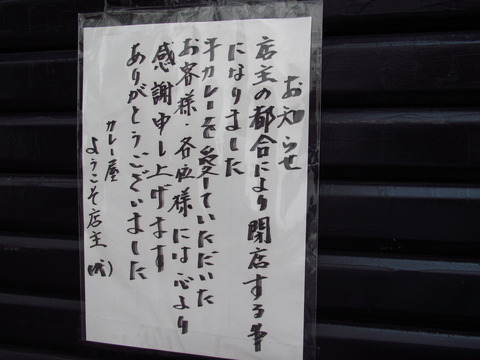 お知らせ
店主の都合により閉店する事
になりました
平カレーを愛していただいた
お客様・各位様には心より
感謝申し上げます
ありがとうございました
カレー屋
ようこそ店主